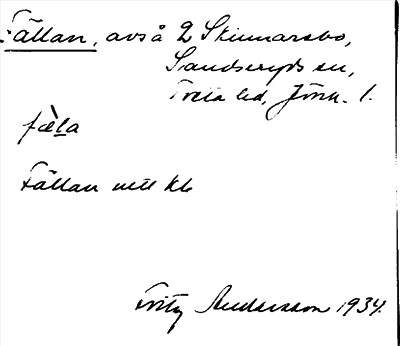 Fällan, avs å 2 Skinnarebo,
Sandseryds sn,
Tveta hd, Jönk. l.
fæ̀la
Fällan utt kb
Fritz Andersson 1934.